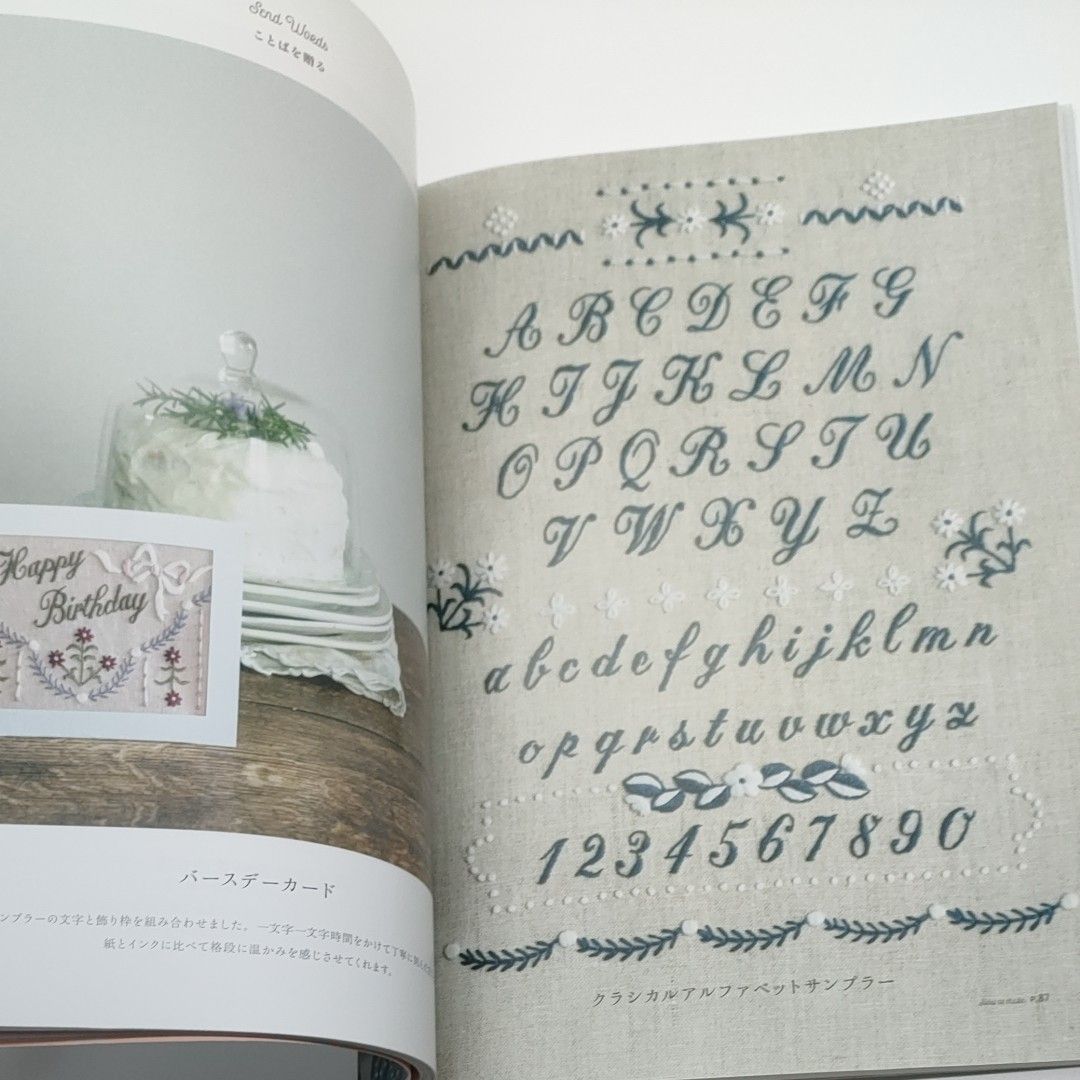 Send Words
ことばを贈る
Happy
Birthday
バースデーカード
ンプラーの文字と飾り枠を組み合わせました。一文字一文字時間をかけて丁寧に
紙とインクに比べて格段に温かみを感じさせてくれます。
A B C D E F G
H I J K L M N
O P Q R S T U
V W X Y Z
a b c d e f g h i j k l m n
o p q r s t u v w x y z
1 2 3 4 5 6 7 8 9 0
クラシカルアルファベットサンプラー
How to make P.87